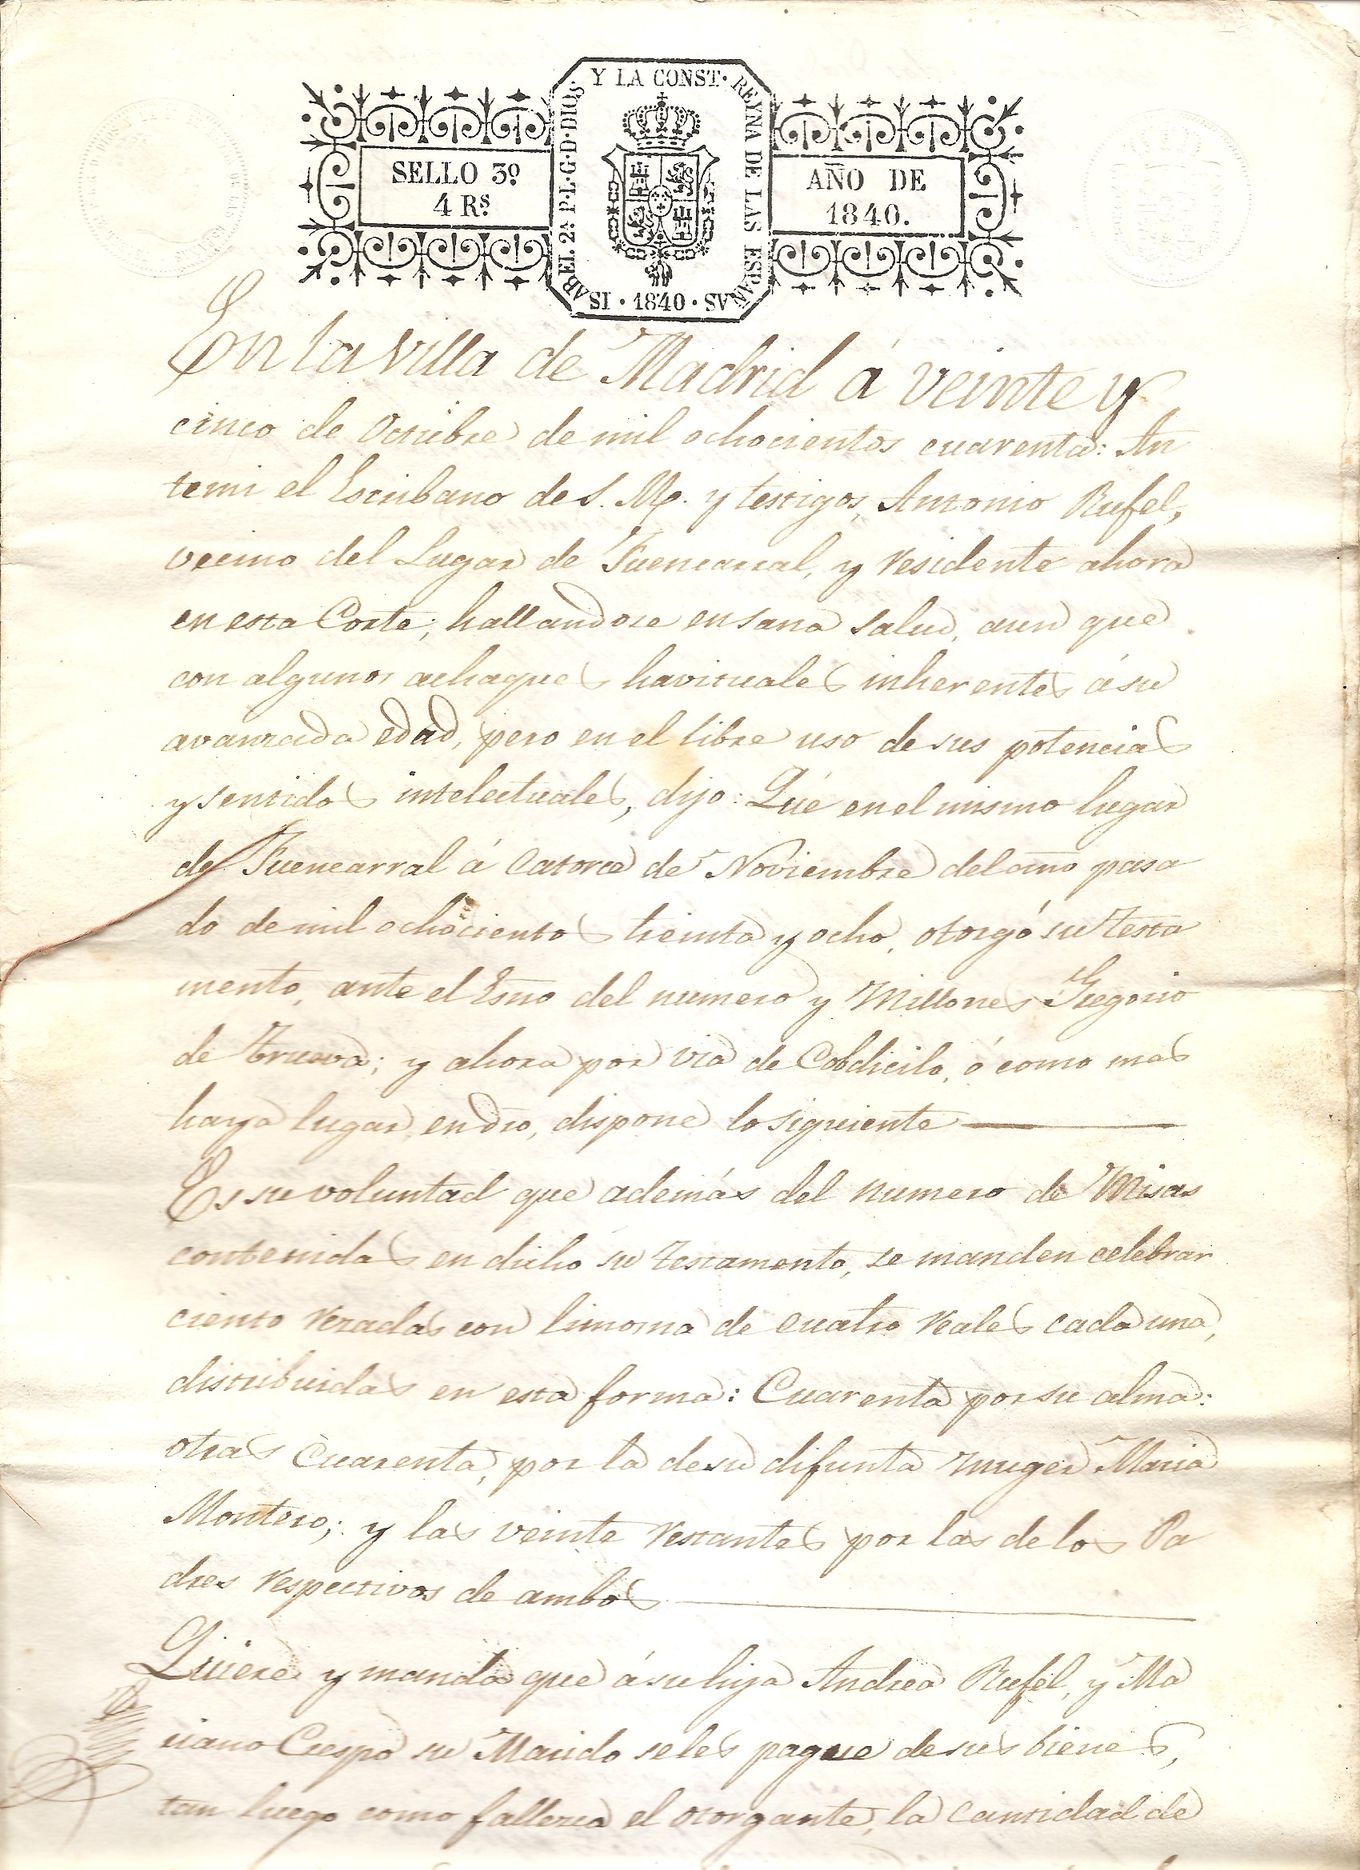 SELLO 3º
4 Rs
ISABEL 2ª P. L. G. D. DIOS. Y LA CONST. REYNA DE LAS ESPAÑAS · 1840 ·
AÑO DE
1840.
En la villa de Madrid á veinte y
cinco de Octubre de mil ochocientos cuarenta: An
temi el Escribano de S. M. y testigos, Antonio Rufel,
vecino del Lugar de Fuencarral, y residente ahora
en esta Corte, hallandose en sana salud, aun que
con algunos achaques havituales inherentes á su
avanzada edad, pero en el libre uso de sus potencias
y sentidos intelectuales, dijo: Qué en el mismo lugar
de Fuencarral á catorce de Noviembre del año pasa
do de mil ochocientos treinta y ocho, otorgó su testa
mento, ante el Esno del numero y Millones Gregorio
de Trueva; y ahora por via de Cobdicilo, ó como mas
haya lugar en dro, dispone lo siguiente
Es su voluntad que además del numero de Misas
contenidas en dicho su testamento, se manden celebrar
ciento rezadas con limosna de cuatro reales cada una,
distribuidas en esta forma: Cuarenta por su alma:
otras cuarenta, por la de su difunta muger Maria
Montero; y las veinte restantes por las de los Pa
dres respectivos de ambos
Quiere y manda que á su hija Andrea Rufel, y Ma
riano Crespo su Marido se les pague de sus bienes,
tan luego como fallezca el otorgante, la cantidad de